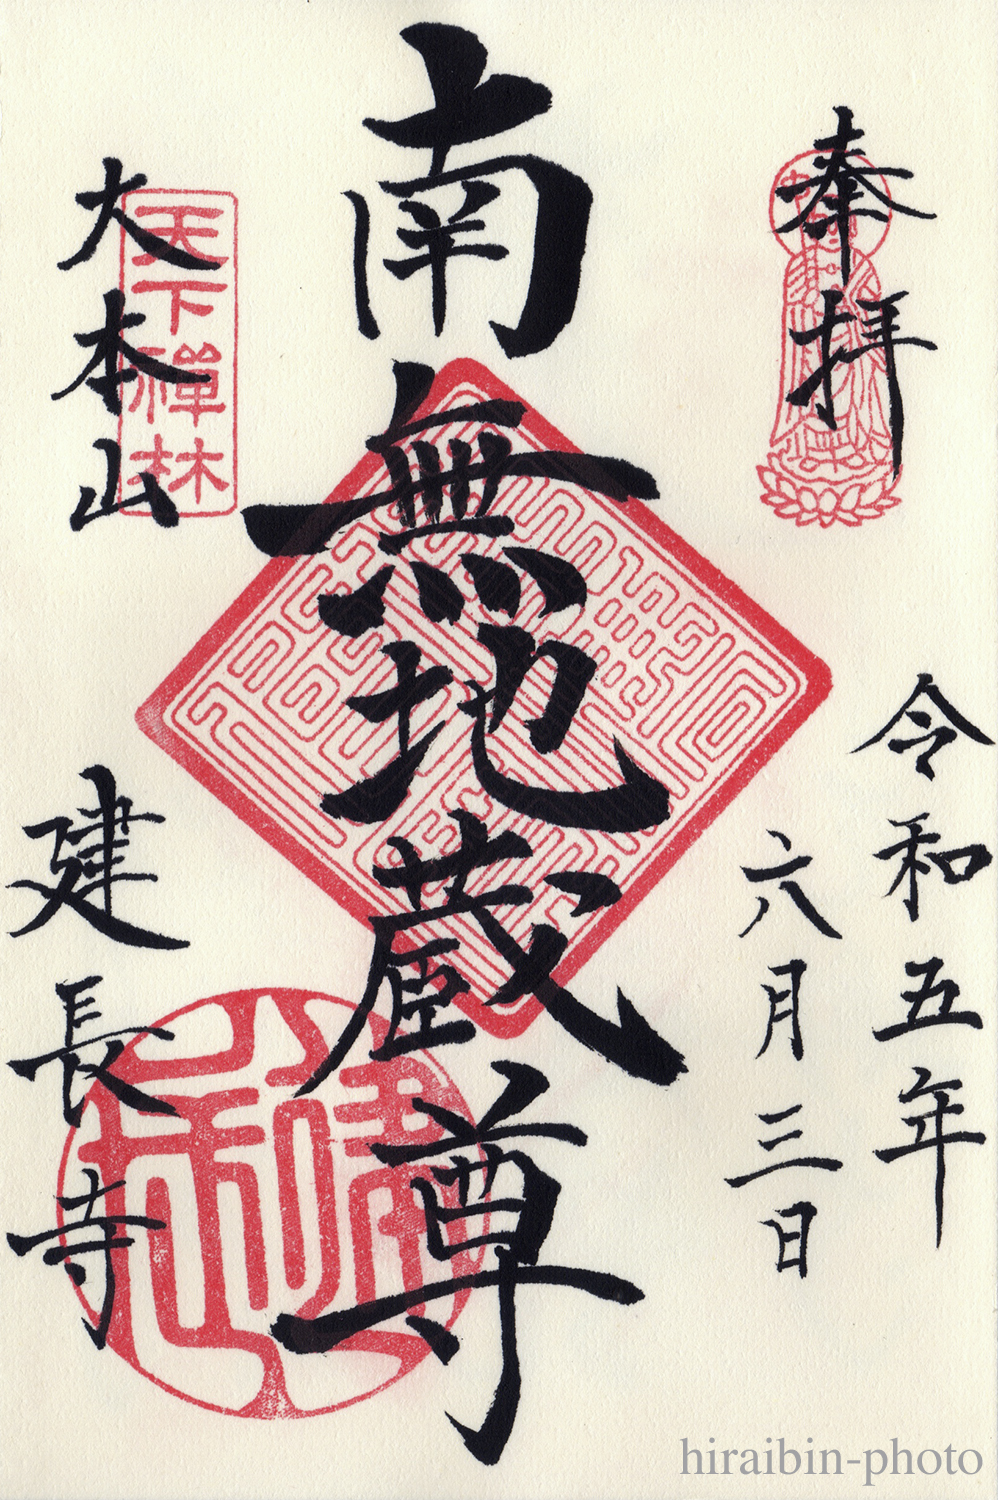 奉拝
令和五年
六月三日
南無地蔵尊
天下禅林
大本山
建長寺
hiraibin-photo